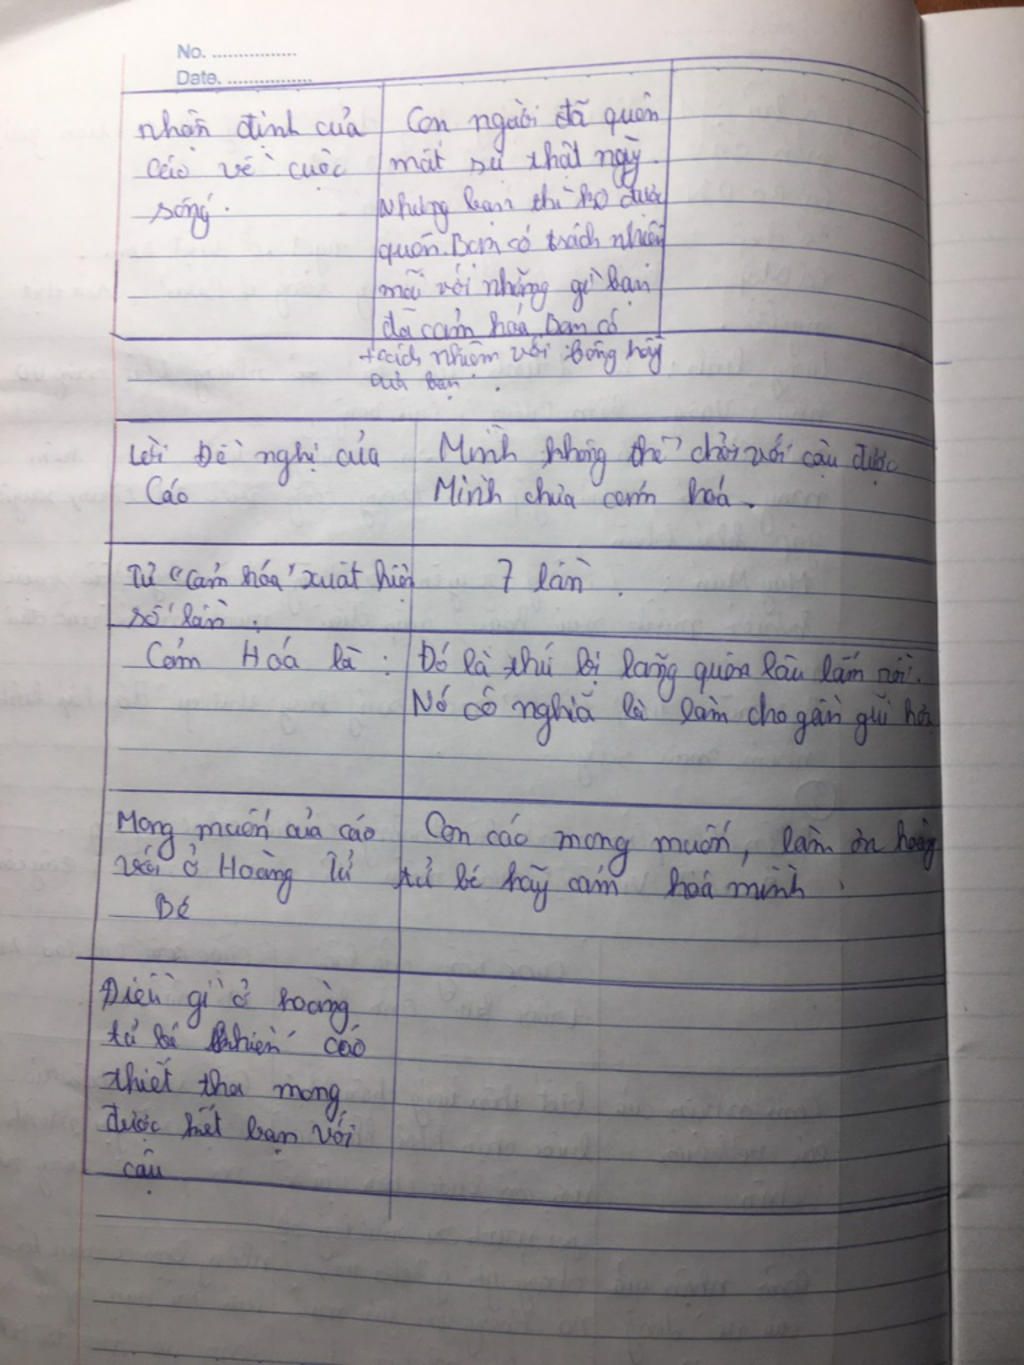 No. ................
Date. ................
nhận định của
cáo về cuộc
sống.
Con người đã quên
mất sự thật này.
Nhưng bạn thì ko được
quên. Bạn có trách nhiệm
mãi với những gì bạn
đã cảm hoá. Bạn có
trách nhiệm với bông hồng
của bạn.
Lời Đề nghị của
Cáo
Mình không thể chơi với cậu được
Mình chưa cảm hoá.
Từ "cảm hóa" xuất hiện
số lần.
7 lần.
Cảm Hoá là :
Đó là thứ bị lãng quên lâu lắm rồi.
Nó có nghĩa là làm cho gần gũi hơn
Mong muốn của cáo
với ở Hoàng Tử
Bé
Con cáo mong muốn, làm ơn hoàng
tử bé hãy cảm hoá mình.
Điều gì ở hoàng
tử bé khiến cáo
thiết tha mong
được kết bạn với
cậu